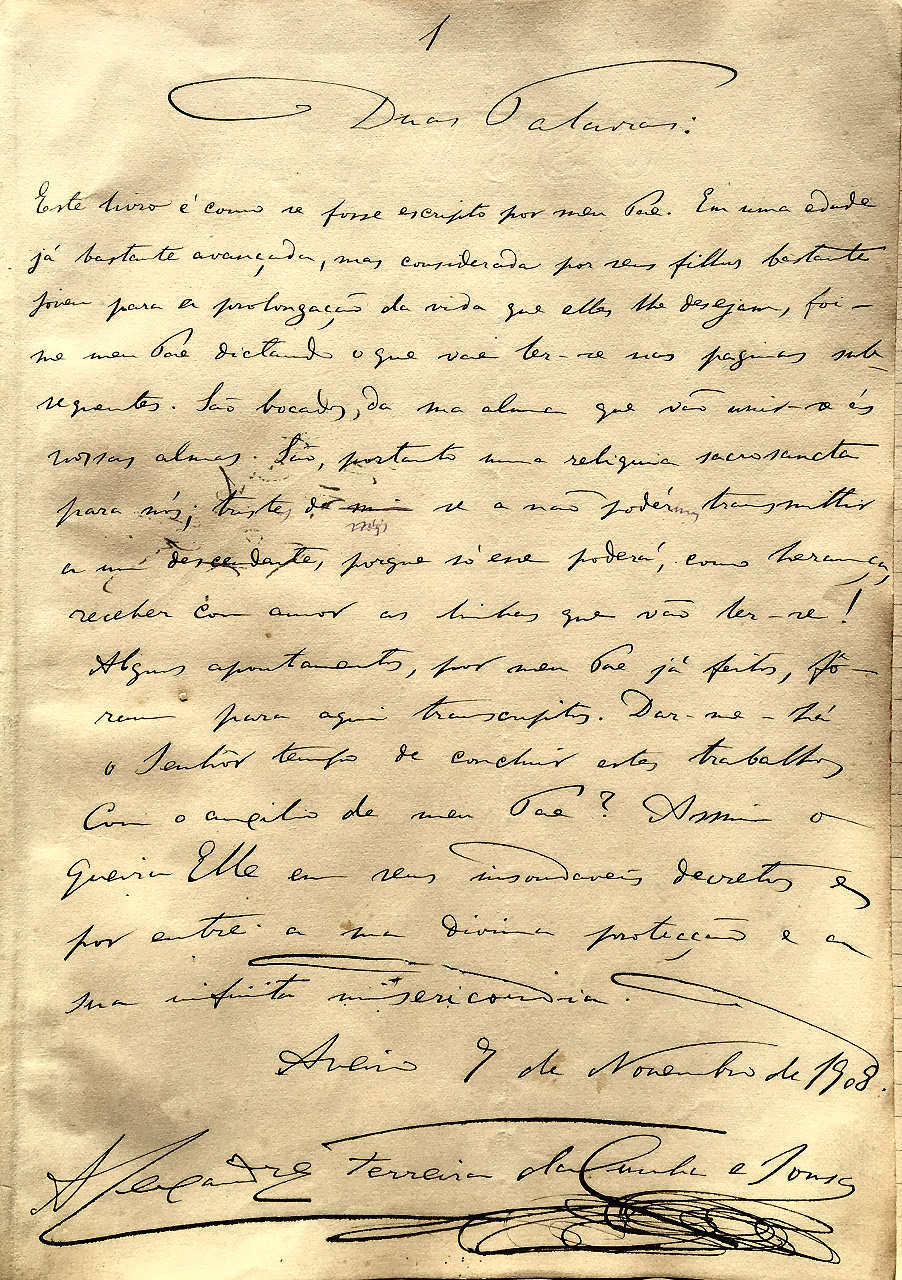 1
Duas Palavras:
Este livro é como se fosse escripto por meu Pae. Em uma edade
já bastante avançada, mas considerada por seus filhos bastante
joven para a prolongação da vida que elles lhe desejam, foi-
me meu Pae dictando o que vae ler-se nas paginas sub-
sequentes. São bocados, da sua alma que vão unir-se ás
nossas almas. São, portanto uma reliquia sacrosancta
para nós; tristes de nós se a não podérmos transmittir
a um descendente, porque só esse poderá, como herança,
receber com amor as linhas que vão ler-se!
Alguns apontamentos, por meu Pae já feitos, fô-
ram para aqui transcriptos. Dar-me-há
o Senhôr tempo de concluir estes trabalhos
com o auxilio de meu Pae? Assim o
queira Elle em seus insondaveis decretos e
por entre a sua divina protecção e a
sua infinita misericordia.
Aveiro 9 de Novembro de 1908.
Alexandre Ferreira da Cunha e Sousa